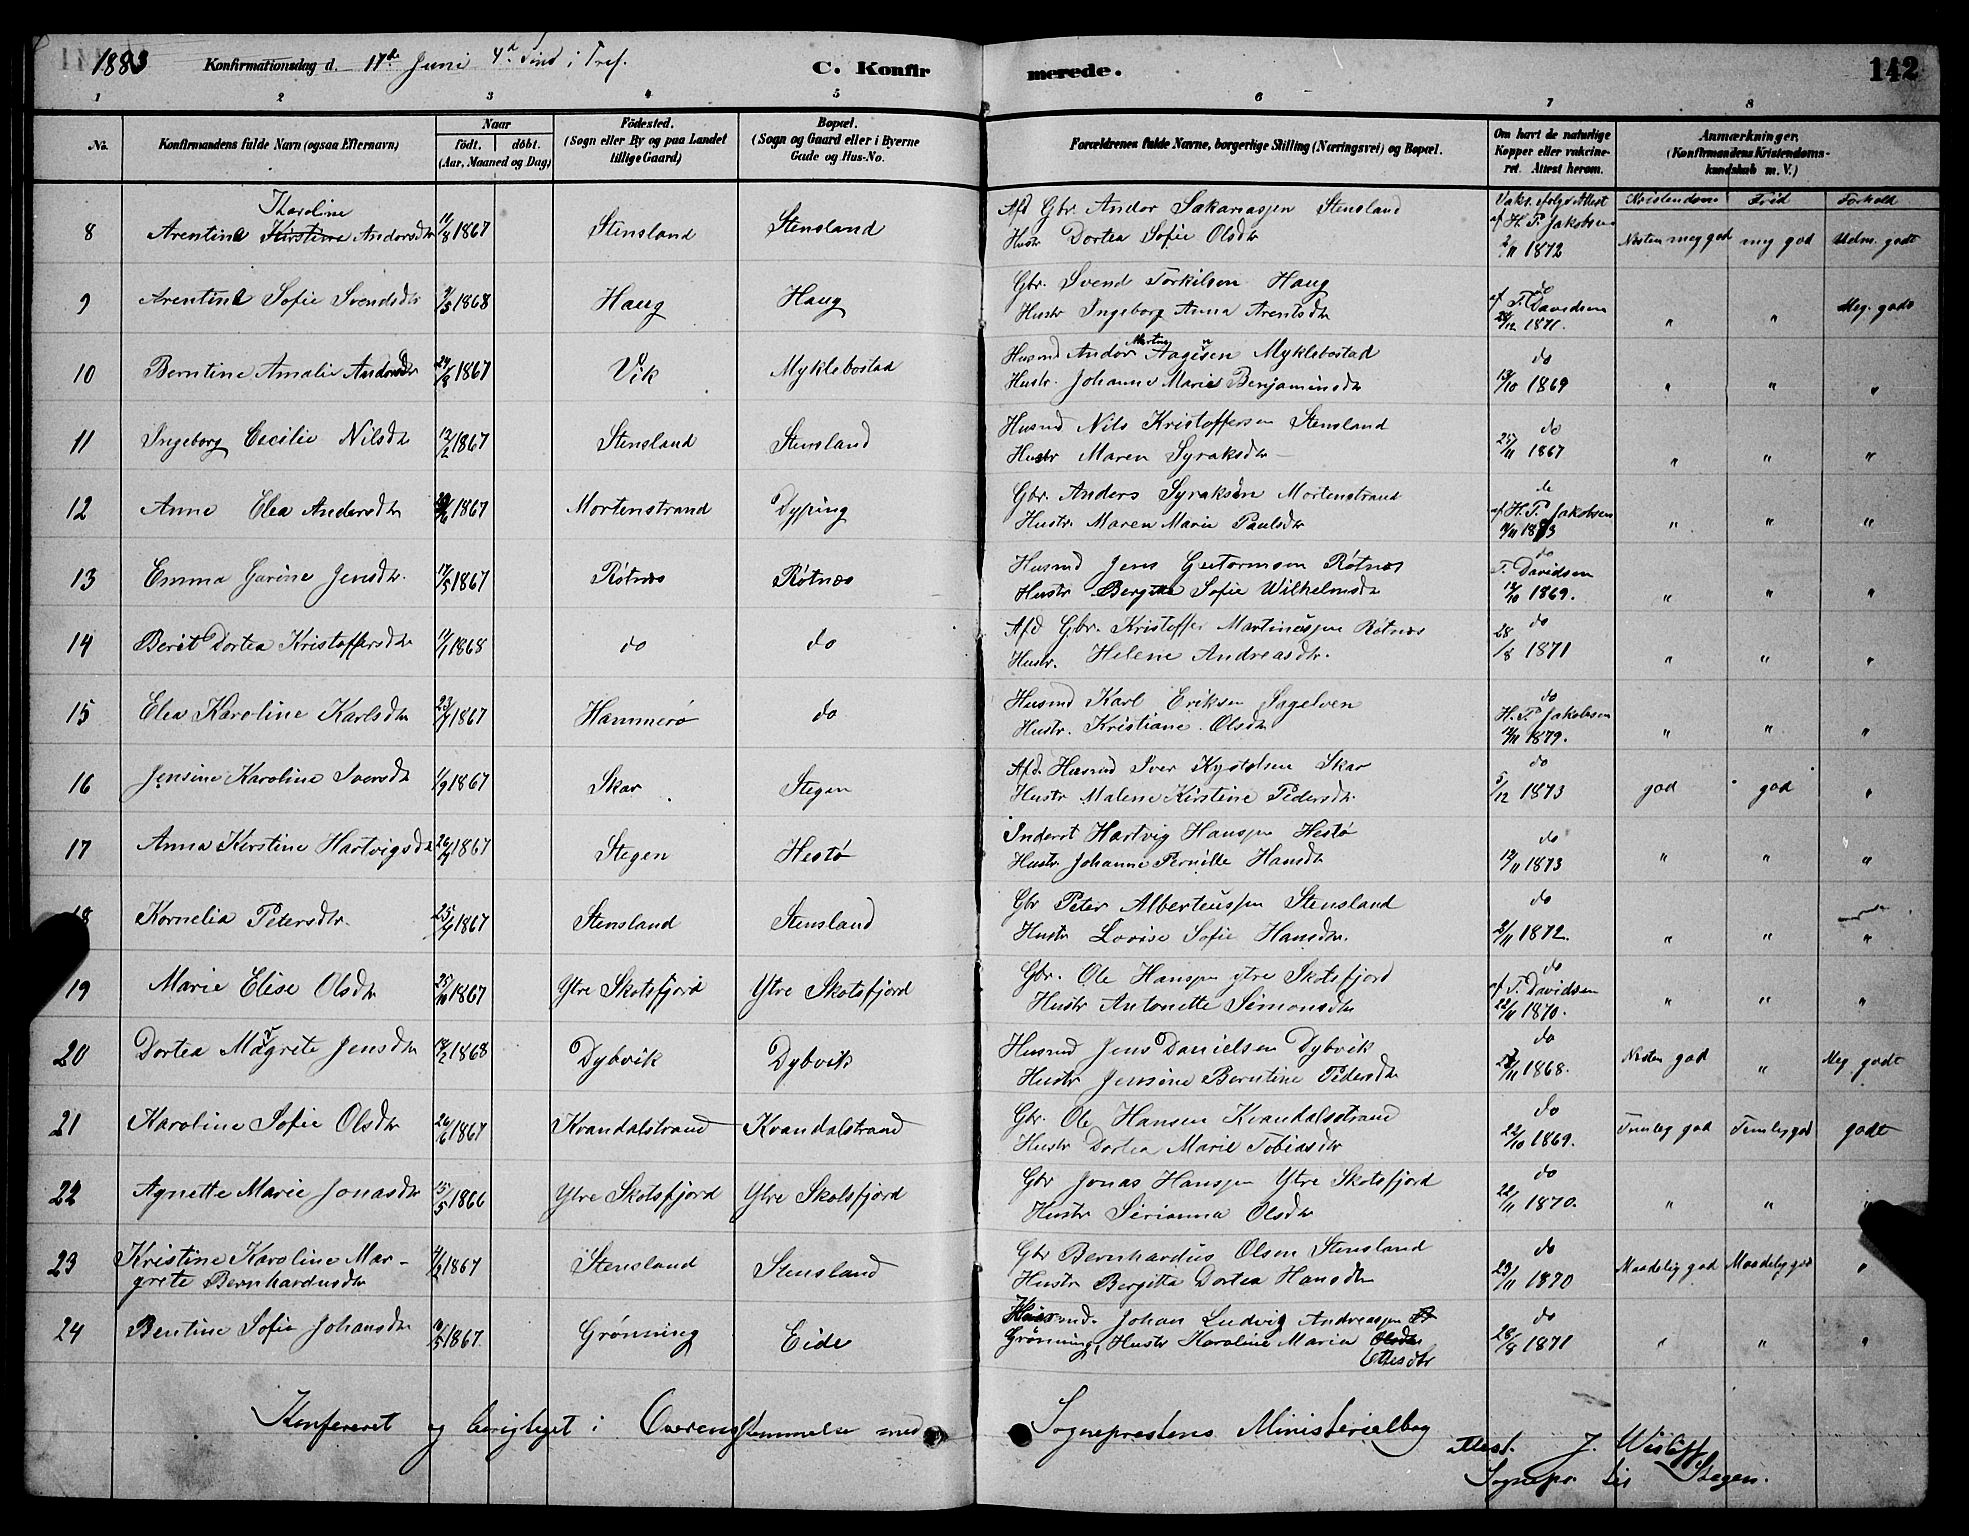 1883 Konfirmationsdag d. 17de Juni 4d. Sønd i Tref. C. Konfir merede. 142
1 2 3 4 5 6 7 8
No. Konfirmandens fulde Navn (ogsaa Efternavn) Naar født. døbt. (Aar, Maaned og Dag) Fødested. (Sogn eller By og paa Landet tillige Gaard) Bopæl. (Sogn og Gaard eller i Byerne Gade og Hus-No. Forældrenes fulde Navne, borgerlige Stilling (Næringsvei) og Bopæl. Om havt de naturlige Kopper eller vakcineret. Attest herom. Anmærkninger. (Konfirmandens Kristendomskundskab m. V.)
Kristendom Flid Forhold
8 Arentine Karoline Kirstine Andorsdtr 11/8 1867 Stensland Stensland Afd Gbr. Andor Sakariassen Stensland
Hustr Dortea Sofie Olsdtr Vaks. ifølge Attest af H. P. Jakobsen 2/11 1872 Nesten meg god meg god Udm. godt
9 Arentine Sofie Svendsdtr 9/3 1868 Haug Haug Gbr. Svend Torkilsen Haug
Hustr Ingeborg Anna Arentsdtr do af T. Davidsen 28/12 1871. " " Meg. godt
10 Berntine Amalie Andorsdtr 24/8 1867 Vik Myklebostad Husmd Andor Martin Aagesen Myklebostad
Hustr. Johanne Marie Benjaminsdtr do 13/10 1869 " " "
11 Ingeborg Cecilie Nilsdtr 12/2 1867 Stensland Stensland Husmd Nils Kristoffersen Stensland
Hustr Maren Syraksdtr do 25/11 1867 " " "
12 Anne Elea Andersdtr 1867 Mortenstrand Dyping Gbr. Anders Syraksen Mortenstrand
Hustr. Maren Marie Paulsdtr do af H. P. Jakobsen 11/11 1873 " " "
13 Emma Garine Jensdtr. 17/5 1867 Røtnes Røtnes Husmd Jens Guttormsen Røtnes
Hustr Bergitte Sofie Wilhelmsdtr do T. Davidsen 12/10 1869. " " "
14 Berit Dortea Kristoffersdtr 11/1 1868 do do Afd Gbr. Kristoffer Martinussen Røtnes
Hustr. Helene Andreasdtr. do 28/8 1871 " " "
15 Elea Karoline Karlsdtr 23/7 1867 Hammerø do Husmd Karl Eriksen Sagelven
Hustr. Kristiane Olsdtr do H. P. Jakobsen 1879. " " "
16 Jensine Karoline Iversdtr 11/9 1867 Skar Stegen Afd. Husmd Iver Kystolsen Skar
Hustr Malene Kirstine Pedersdtr. do 5/12 1873 god god "
17 Anna Kirstine Hartvigsdtr 26/4 1867 Stegen Hestø Inderst Hartvig Hanssen Hestø
Hustr. Johanne Pernille Hansdtr do 12/11 1873 " " "
18 Kornelia Petersdtr. 25/4 1867 Stensland Stensland Gbr Peter Alberteussen Stensland
Hustr Lovise Sofie Hansdtr. do 2/11 1872. " " "
19 Marie Elise Olsdtr 25/10 1867 Ytre Skotsfjord Ytre Skotsfjord Gbr. Ole Hanssen ytre Skotsfjord
Hustr Antonette Simonsdtr do af T. Davidsen 22/11 1870. " " "
20 Dortea Margrete Jensdtr 14/2 1868 Dybvik Dybvik Husmd Jens Danielsen Dybvik
Hustr Jensine Berntine Pedersdtr do 27/11 1868. Nesten god " Meg godt
21 Karoline Sofie Olsdtr 26/6 1867 Kvandalstrand Kvandalstrand Gbr. Ole Hansen Kvandalsstrand
Hustr Dortea Marie Tobiasdtr do 22/10 1869. Temleg god Temleg god godt
22 Agnette Marie Jonasdtr 15/5 1866 Ytre Skotsfjord Ytre Skotsfjord Gbr Jonas Hanssen Ytre Skotsfjord
Hustr Serianna Olsdtr do 22/11 1870. " " "
23 Kristine Karoline Mar-
grete Bernhardusdtr 1867 Stensland Stensland Gbr Bernhardus Olsen Stensland
Hustr Bergitta Dortea Hansdtr do 23/11 1870 Maadelig god Maadelig god "
24 Bentine Sofie Johansdtr 1867. Grønning Eide Husmd. Johan Ludvig Andreassen
Grønning, Hustr Karoline Maria Olsdtr Ottesdtr do 28/8 1871 " " "
Konfereret og berigtiget i Overensstemmelse med Sogneprestens Ministerialbog
Attest. J. Wisløff
Sognepr. til Stegen.